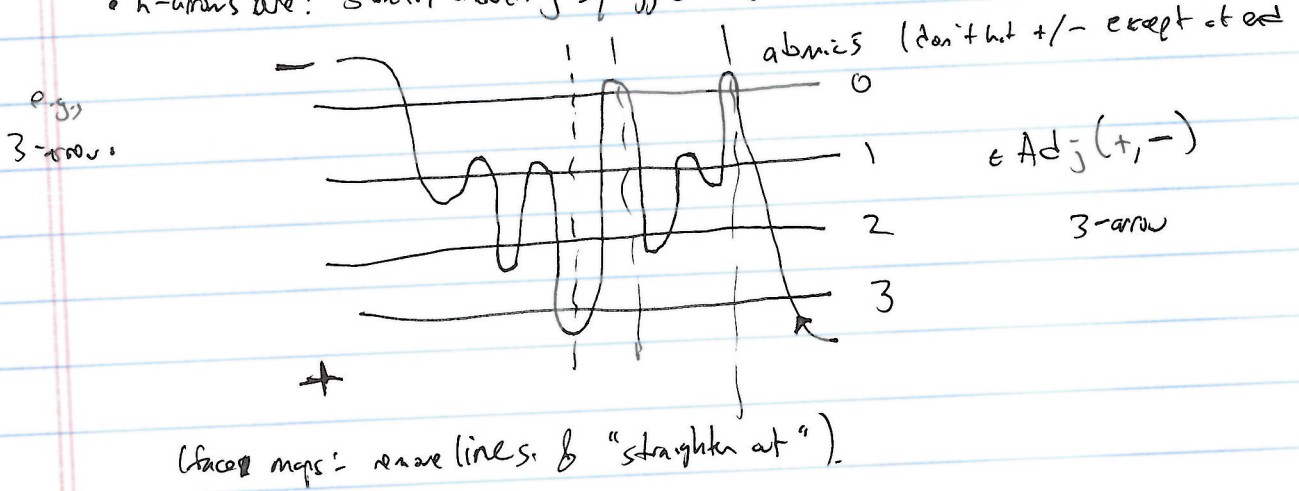 • n-arrows are:
— atomics (don't hit +/- except at end
e.g., 0
3-arrow: 1 ∈ Adj(+,-)
2 3-arrow
3
+
(face maps: remove lines. & "straighten out").